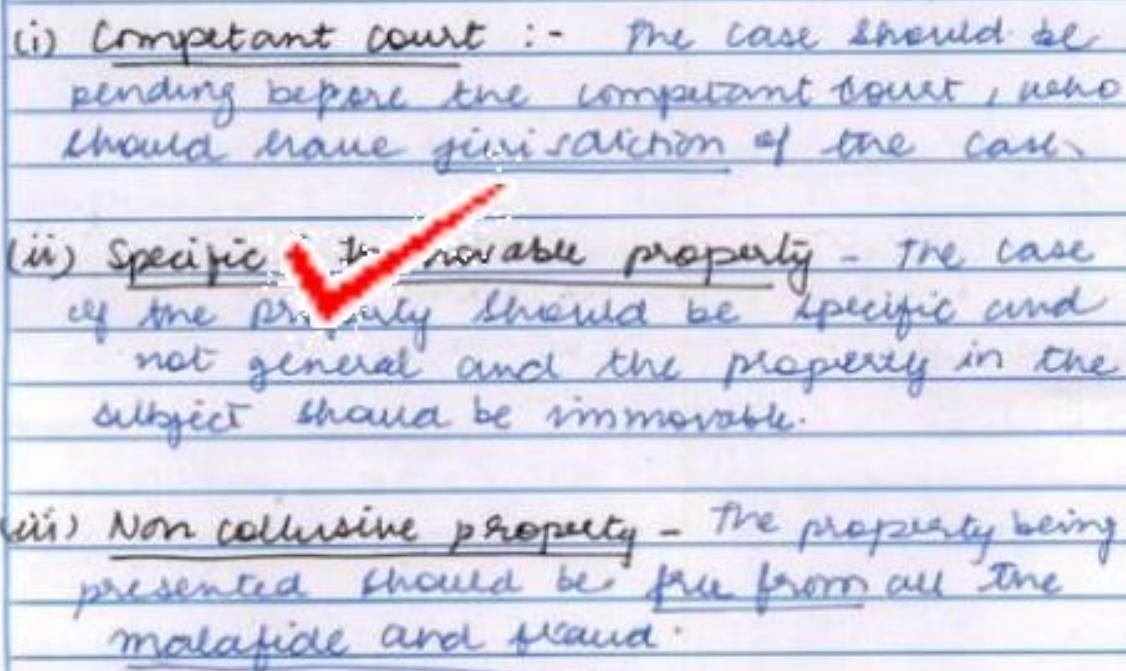 (i) Competant court :- The case should be
pending before the competant court, who
should have jurisdiction of the case.
(ii) Specific Immovable property - The case
of the property should be specific and
not general and the property in the
subject should be immovable.
(iii) Non collusive property - The property being
presented should be free from all the
malafide and fraud.